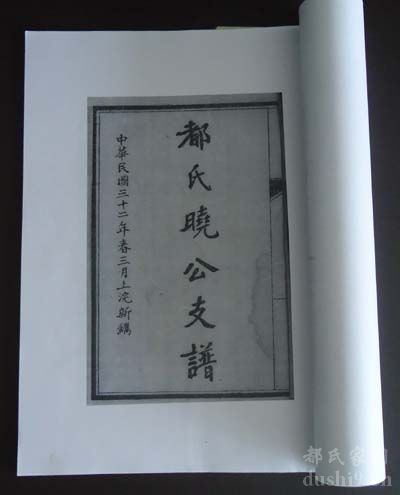 都氏曉公支譜
中華民國三十二年春三月上浣新鐫
都氏家
dushi9.cn